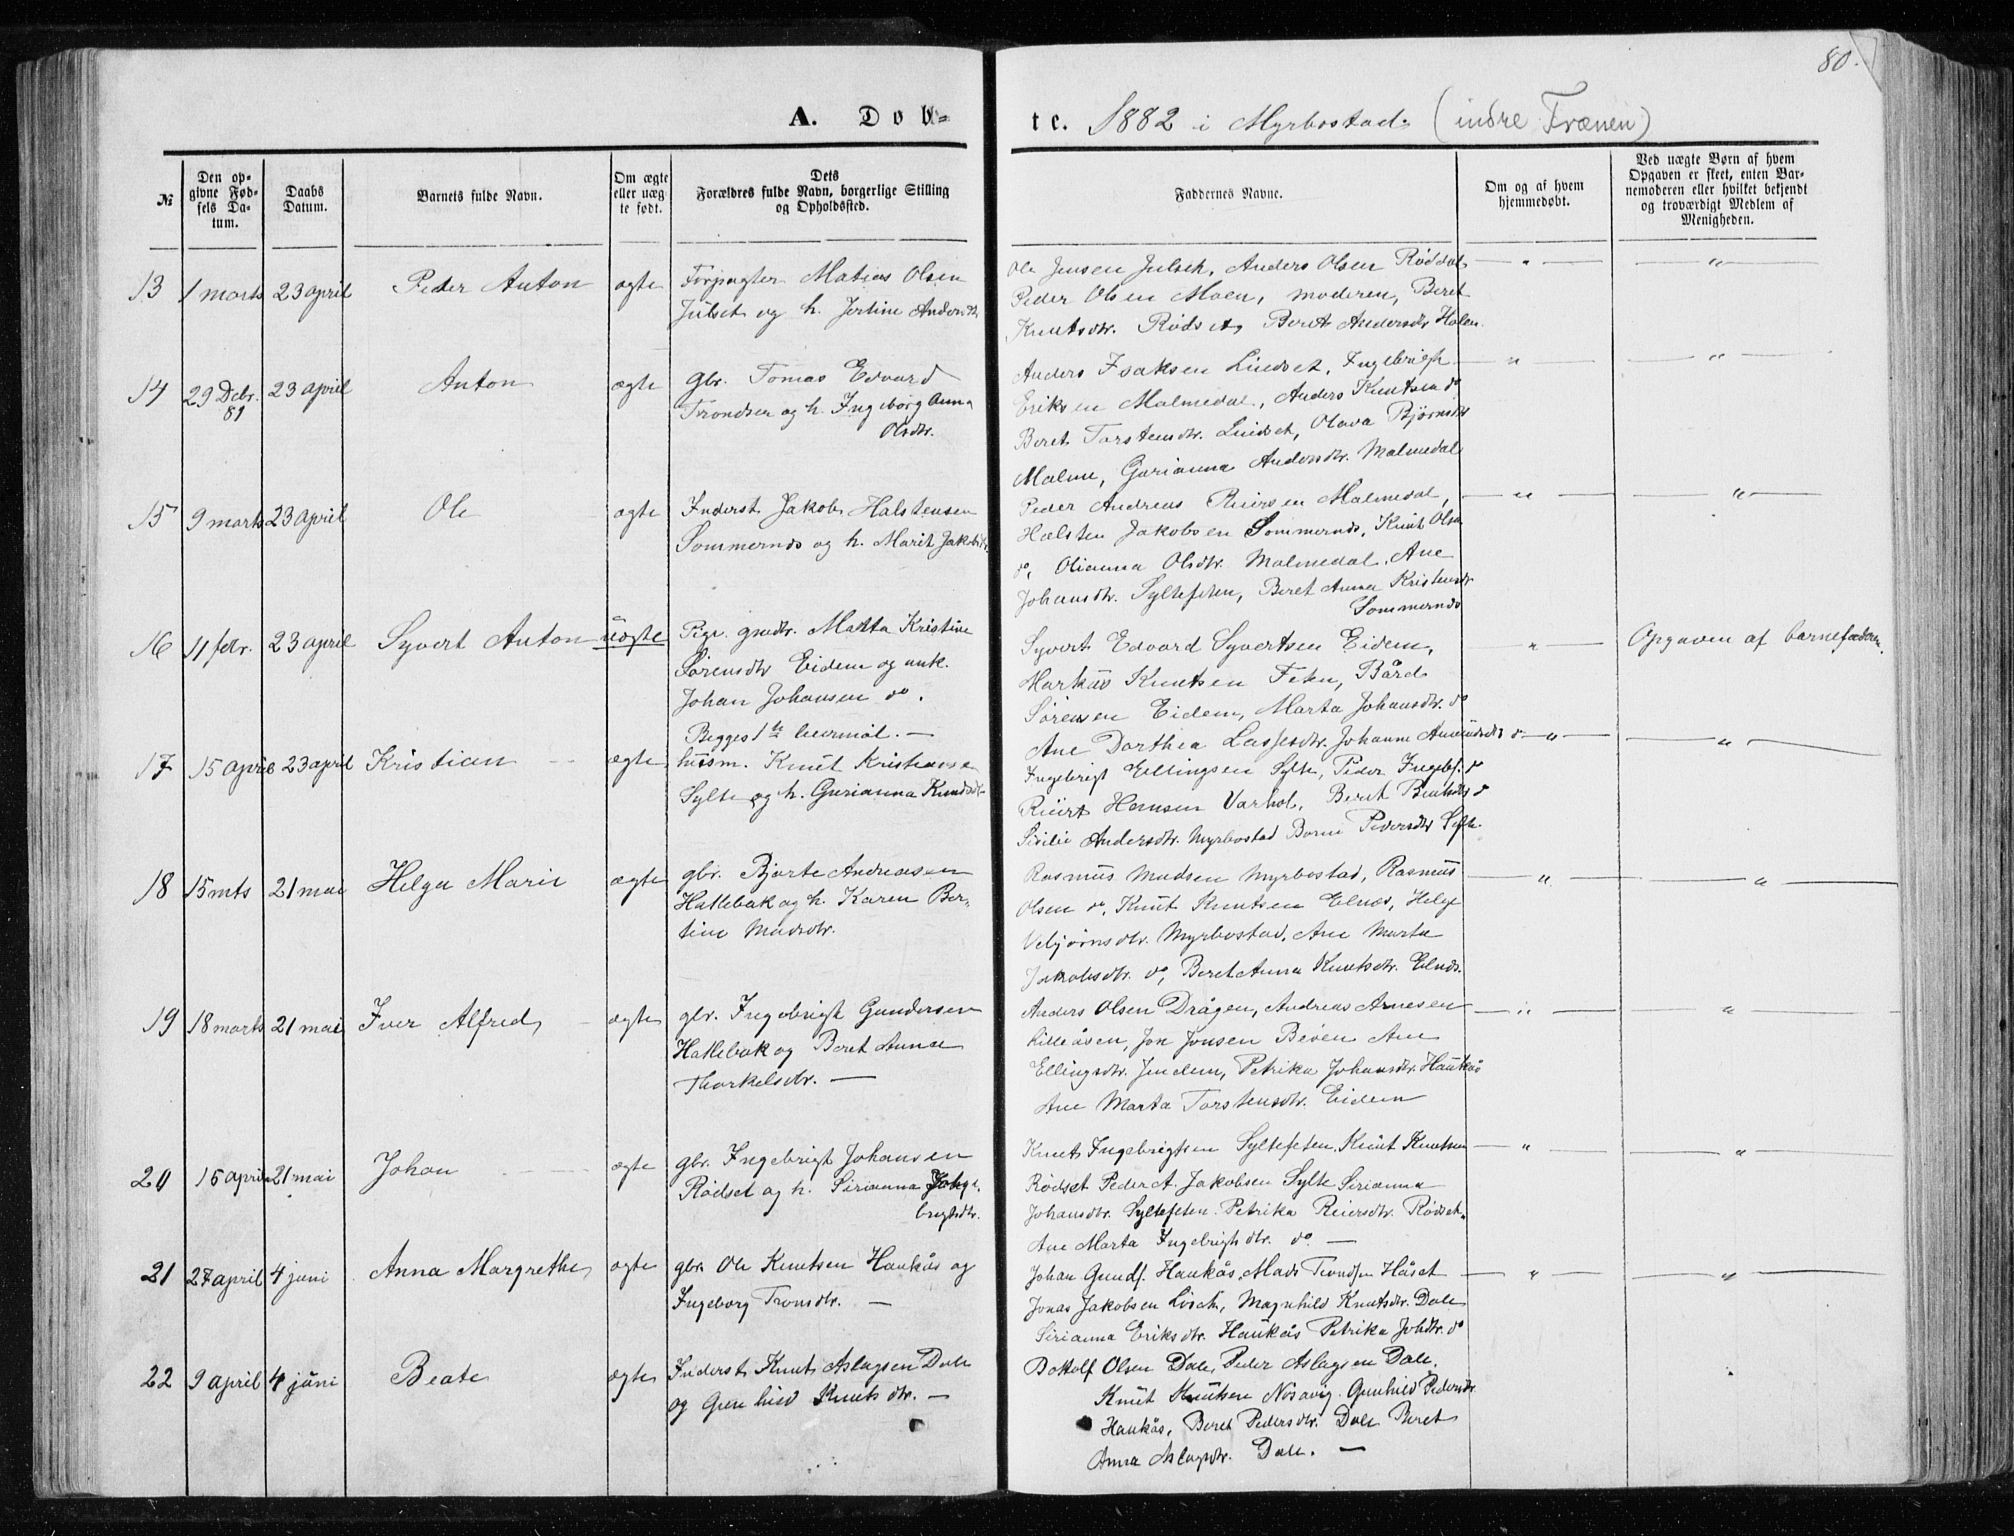 80.
A. Døb-
te. 1882 i Myrbostad. (indre Frænen)
№
Den op-
givne Fød-
sels Da-
tum.
Daabs
Datum.
Barnets fulde Navn.
Om ægte
eller uæg-
te født.
Dets
Forældres fulde Navn, borgerlige Stilling
og Opholdssted.
Faddernes Navne.
Om og af hvem
hjemmedøbt.
Ved uægte Børn af hvem
Opgaven er skeet, enten Bar-
nemoderen eller hvilket bekjendt
og troværdigt Medlem af
Menigheden.
13 1 marts 23 april Peder Anton ægte
Forpagter Matias Olsen
Julset og h. Jertine Andersdtr
Ole Jensen Julseth, Anders Olsen Røddal
Peder Olsen Moen, moderen, Beret
Knutsdtr. Rødset, Beret Andersdtr Holen.
14 29 Debr. 81 23 april Anton ægte
gbr. Tomas Edvard
Trondsen og h. Ingeborg Anna
Olsdtr.
Anders Isaksen Lindset, Ingebrigt
Eriksen Malmedal, Anders Knutsen do
Beret Torstensdtr. Lindset, Olava Bjørnsdtr
Malme, Gurianna Andersdtr. Malmedal
15 9 marts 23 april Ole ægte
Inderst Jakob Halstensen
Sommernes og h. Marit Jakobsdtr.
Peder Andreas Reiersen Malmedal,
Halsten Jakobsen Sommernes, Knut Olsen
do, Olianna Olsdtr. Malmedal, Ane
Johansdtr. Syltefeten, Beret Anna Kristensdtr
Sommernes
16 11 febr. 23 april Syvert Anton uægte
Pige. grndtr. Matta Kristine
Sørensdtr Eidem og unk.
Johan Johansen do.
Begges 1te leiermål. —
Syvert Edvard Syvertsen Eidem,
Markus Knutsen Feten, Bård
Sørensen Eidem, Marta Johansdtr. do
Ane Dorthea Lassesdtr. Johanne Amundsdtr do
Opgaven af barnefaderen.
17 15 april 23 april Kristian ægte
husm. Knut Kristiansen
Sylte og h. Gurianna Knudsdtr
Ingebrigt Ellingsen Sylte, Peder Ingebr. do
Reiert Hansen Varhol, Beret do
Sirilie Andersdtr. Myrbostad Pedersdtr Sylte.
18 15 mts 21 mai Helga Marie ægte
gbr. Bjarte Andreasen
Hattebak og h. Karen Ber-
tine Madsdtr.
Rasmus Madsen Myrbostad, Rasmus
Olsen do, Knut Knutsen Elnes, Helge
Vebjørnsdtr. Myrbostad, Ane Marta
Jakobsdtr. do, Beret Anna Knutsdtr. Elnes.
19 18 marts 21 mai Iver Alfred ægte
gbr. Ingebrigt Gundersen
Hattebak og Beret Anna
Thorkelsdtr. —
Anders Olsen Drågen, Andreas Arnesen
Lilleåsen, Jon Jonsen Bøen Ane
Ellingsdtr. Jendem, Petrika Johansdtr. Haukås
Ane Marta Torstensdtr. Eidem
20 15 april 21 mai Johan ægte
gbr. Ingebrigt Johansen
Rødset og h. Sirianna Inge-
brigtsdtr.
Knut Ingebrigtsen Syltefeten, Knut Knutsen
Rødset Peder A. Jakobsen Sylte Sirianna
Johansdtr. Syltefeten. Petrika Reiersdtr. Rødset.
Ane Marta Ingebrigtsdtr. do —
21 27 april 4 juni Anna Margrethe ægte
gbr. Ole Knutsen Haukås og
Ingeborg Tronsdtr. —
Johan Gunds. Haukås, Mads Trondsen Håset
Jonas Jakobsen Løseth, Magnhild Knutsdtr. Dale
Sirianna Eriksdtr. Haukås Petrika Johdtr. do
22 9 april 4 juni Beate ægte
Inderst Knut Aslagsen Dale
og Gunhild Knutsdtr. —
Bottolf Olsen Dale, Peder Aslagsen Dale.
Knut Knutsen Nøsavig. Gunhild Pedersdtr.
Haukås, Beret Pedersdtr. Dale Beret
Anna Aslagsdtr. Dale. —